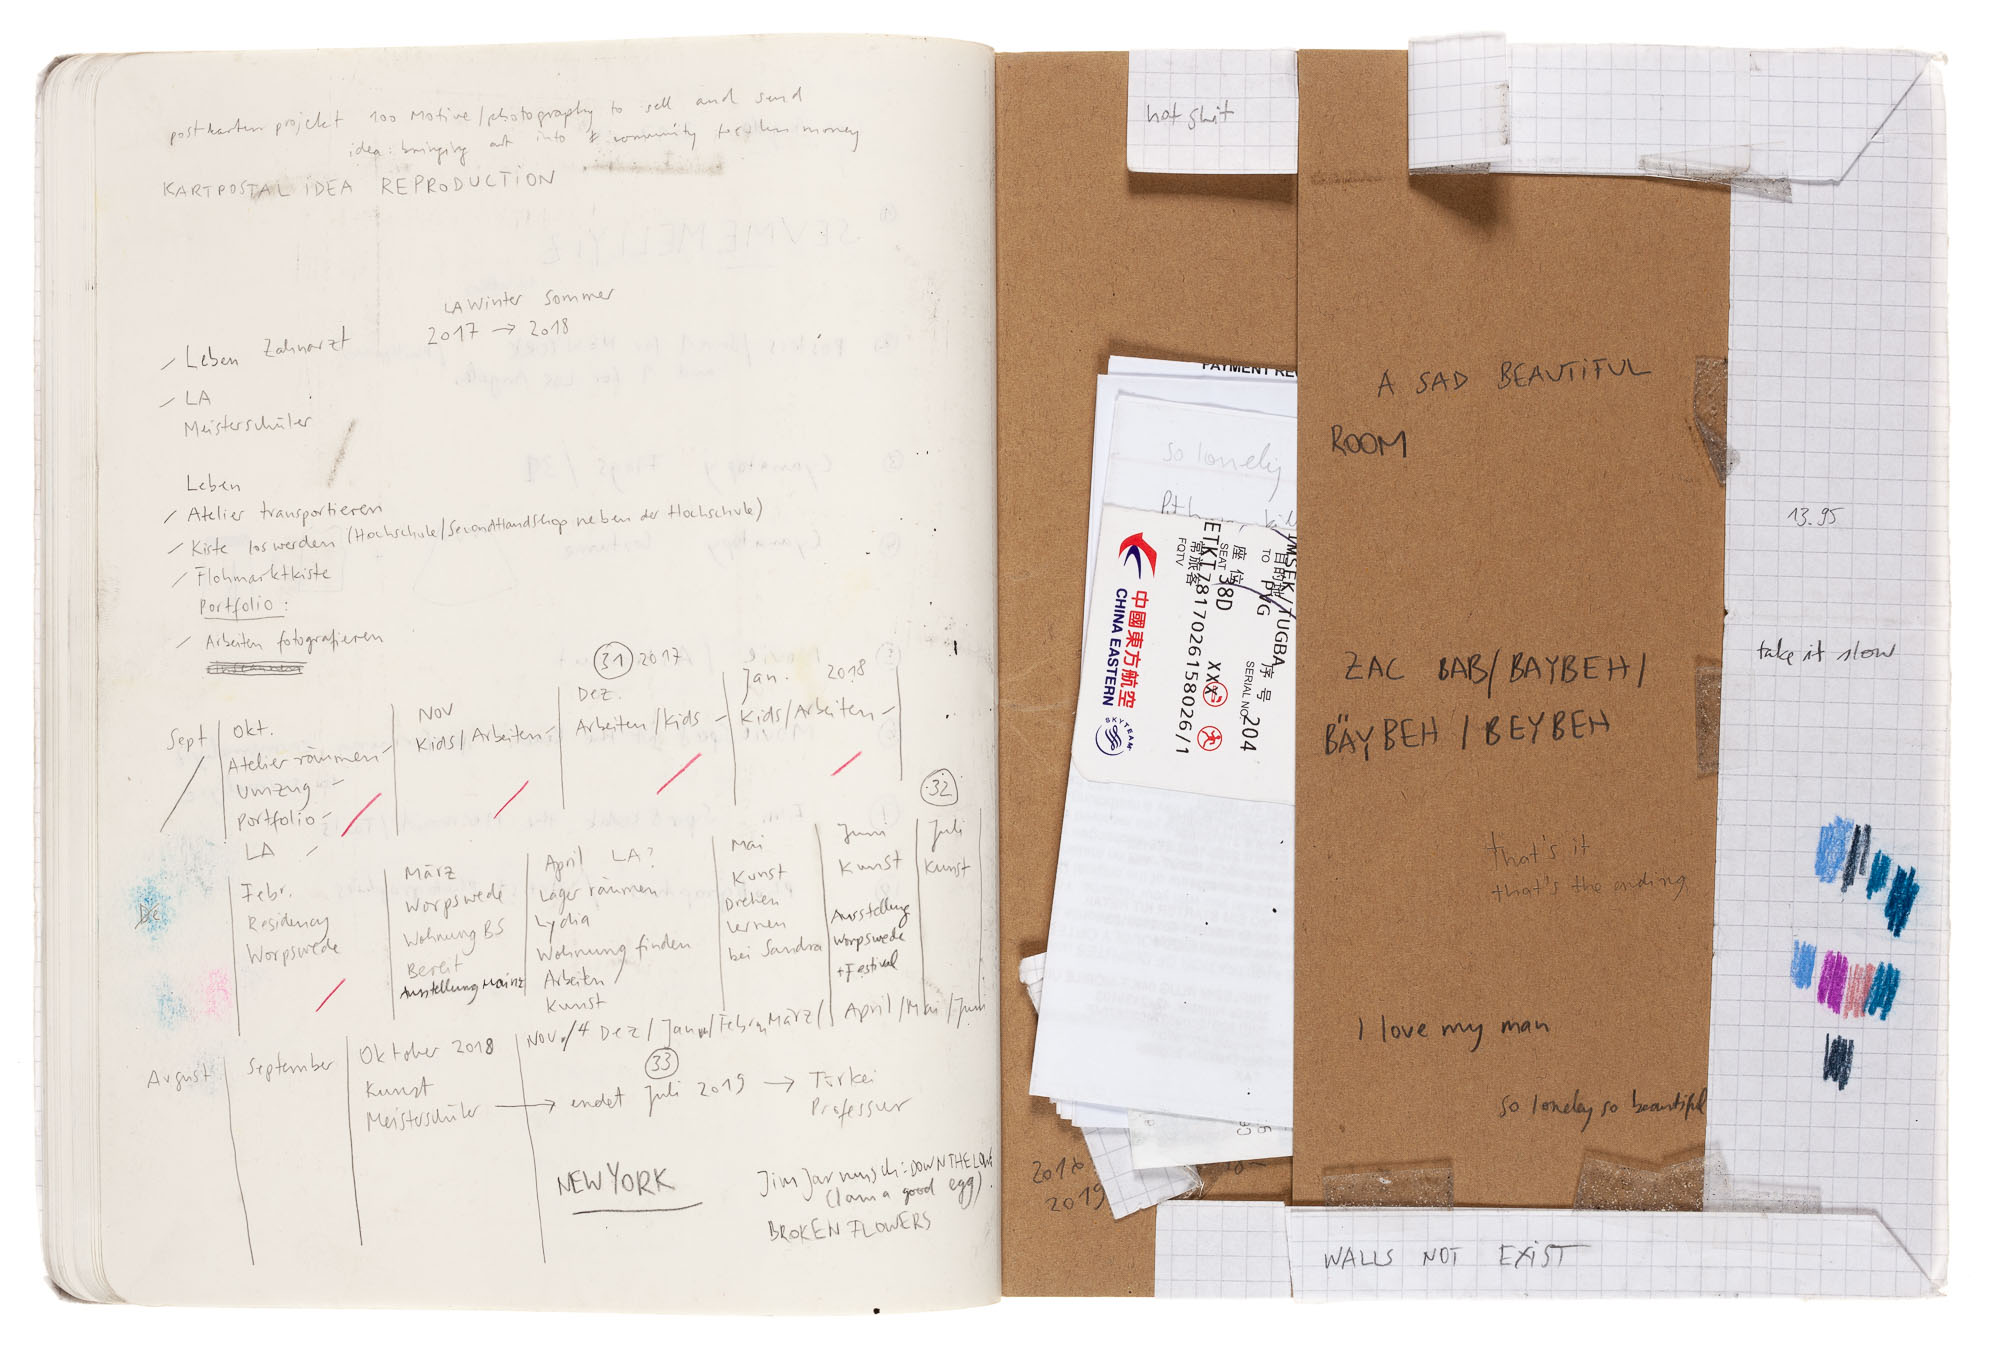 postkarten projekt 100 Motive/photography to sell and send
idea: bringing art into community money
KARTPOSTAL iDEA REPRODUCTION
SEVME MELLYLE
LA Winter Sommer
2017 → 2018
/ Leben Zahnarzt
/ LA
Meisterschüler
Leben
/ Atelier transportieren
/ Kiste loswerden (Hochschule/SecondHandShop neben der Hochschule)
/ Flohmarktkiste
Portfolio:
/ Arbeiten fotografieren
31 2017
Sept
Okt.
Atelier räumen -
Umzug -
Portfolio -
LA -
Nov
Kids/Arbeiten -
Dez.
Arbeiten/Kids -
Jan. 2018
Kids/Arbeiten -
32
De
Febr.
Residency
Worpswede
März
Worpswede
Wohnung BS
Bereit
Ausstellung Mainz
April LA?
Lager räumen
Lydia
Wohnung finden
Arbeiten/
Kunst
Mai
Kunst
Drehen
lernen
bei Sandra
Juni
Kunst
Ausstellung
Worpswede
+ Festival
Juli
Kunst
August
September
Oktober 2018
Kunst
Meisterschüler → endet Juli 2019 → Türkei
Professur
Nov./4 Dez/Jan/Febr/März/ April/Mai/Juni
33
NEW YORK
Jim Jarmusch: DOWN THE LAW
(I am a good egg).
BROKEN FLOWERS
hot shit
PAYMENT RE
so lonely
中國東方航空
CHINA EASTERN
SKYTEAM
IMSEK/TUGBA
目的地
TO PVG
座位
SEAT 38D
序号
SERIAL NO. 204
常旅客
FQTV
XXX
ETKT7817026158026/1
2018
2019
A SAD BEAUTiFUL
ROOM
ZAC BAB/BAYBEH/
BÄYBEH / BEYBEH
that's it
that's the ending
I love my man
so loneley so beautiful
WALLS NOT EXiST
13.95
take it slow